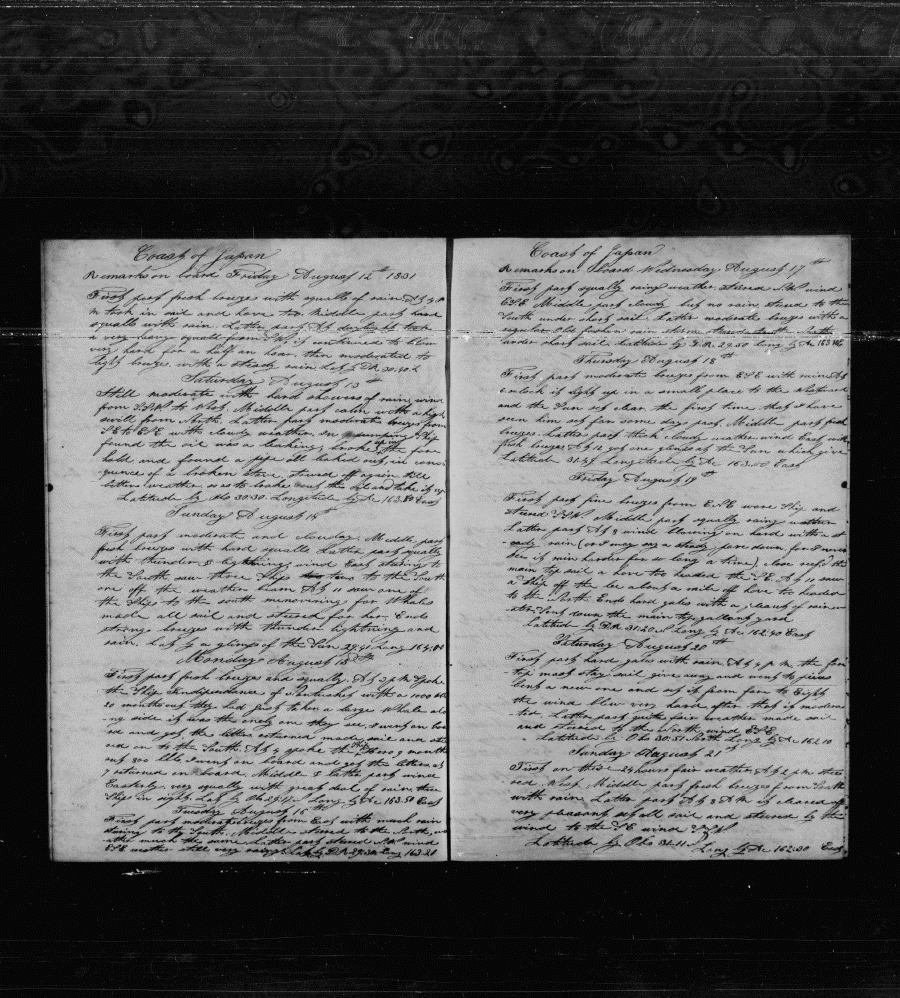 Coast of Japan
Remarks on board Friday August 12th 1831
First part fresh breezes with squalls of rain At 4 P
M took in sail and hove too. Middle part hard
squalls with rain. Latter part At daylight took
a very heavy squall from it continued to blow
very hard for a half an hour then moderated to
light breezes with a steady rain Lat by DR 30.40
Saturday August 13th
Still moderate with hard showers of rain wind
from SSW to West. Middle part calm with a high
swell from South. Latter part moderate breezes from
SE to ESE with cloudy weather. In pumping Ship
found the oil was a leaking, broke the fore
hold and found a pipe all stocked up, in conse
quence of a broken stave, stowed off again till
better weather so as to brake out the oil and take it up
Latitude by Obs 30.30. Longitude by Ac 163.80 East
Sunday August 14th
First part moderate and cloudy. Middle part
fresh breezes with hard squalls Latter part squally
with thunder & lightning wind East steering to
the South saw three Ships two to the South
one off the weather beam At 11 saw one of
the Ships to the south for Whales
made all sail and steered for her. Ends
strong breezes with thunder lightning and
rain. Lat by a glimpse of the Sun 29.41 Long 164.00
Monday August 15th
First part fresh breezes and squally. At 2 PM spoke
the Ship Independance of Nantucket with a 1000 bbls
20 months out they had just taken a large Whale alo
ng side it was the onely one they see I went on boa
rd and got the letters returned made sail and ste
red on to the South. At 4 spoke the Ship 9 months
out 300 bbls I went on board and got the letters at
7 returned on board. Middle & latter part wind
Easterly very squally with great deal of rain three
Ships in sight. Lat by Ob 29.17 Long by Ac 163.50 East
Tuesday August 16th
First part moderate breezes from East with much rain
steering to the South. Middle steered to the North, we
ather much the same Latter part steered NW wind
ESE weather still very rainy Lat by DR 29.30 Long 163.20
Coast of Japan
Remarks on board Wednesday August 17th
First part squally rainy weather. steered NW wind
ESE Middle part cloudy but no rain stered to the
South under short sail. Latter moderate breezes with a
regular old fashion rain storm steered to the North
under short sail Latitude by D.R. 29.50 Long by Ac 163.
Thursday August 18th
First part moderate breezes from ESE with rain At
6 oclock it light up in a small place to the westward
and the Sun set clear the first time that I have
seen him set for some days past. Middle part fresh
breezes. Latter part thick cloudy weather wind East with
fresh breezes At 12 got one glimpse of the Sun which give
Latitude 31.59 Longitude by Ac 163.00 East
Friday August 19th
First part fine breezes from ESE wore Ship and
steered SSW. Middle part squally rainy weather
Latter part At 8 wind blowing on hard with a st
eady rain (or I may say a steady pore down for I never
see it rain harder for so long a time) close reeft the
main top sail hove too headed the NE At 11 saw
a Ship off the lee bow a mile off hove too headen
to the North Ends hard gales with a of rain
sent down the main topgallant yard
Latitude by D.R. 31.20 N Long by Ac 162.40 East
Saturday August 20th
First part hard gales with rain At 4 P.M. the fore
top mast stay sail give away and went to pieces
bent a new one and set it from four to Eight
the wind blew very hard after that it modera
ted. Latter part quite fair weather made sail
and steered to the North wind ESE
Latitude by Obs 30.51 North Long by Ac 162.10
Sunday August 21st
First on these 24 hours fair weather At 2 P.M. stee
red West. Middle part fresh breezes from South
with rain. Latter part At 2 A.M. it cleared off
very pleasant set all sail and steered by the
wind to the SE wind SSW
Latitude by Obs 31.11 N Long by Ac 162.30 East